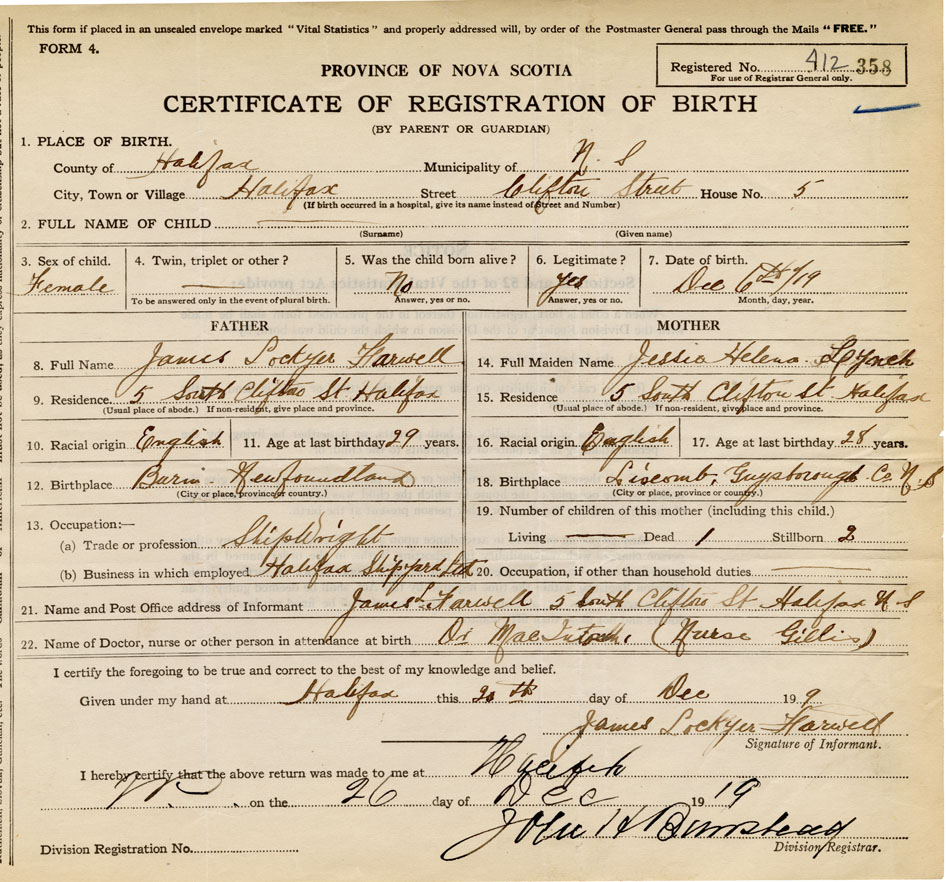 This form if placed in an unsealed envelope marked "Vital Statistics" and properly addressed will, by order of the Postmaster General pass through the Mails "FREE."
FORM 4.
Registered No. 412 358
For use of Registrar General only.
PROVINCE OF NOVA SCOTIA
CERTIFICATE OF REGISTRATION OF BIRTH
(BY PARENT OR GUARDIAN)
1. PLACE OF BIRTH.
County of Halifax Municipality of N. S
City, Town or Village Halifax Street Clifton Street House No. 5
(If birth occurred in a hospital, give its name instead of Street and Number)
2. FULL NAME OF CHILD
(Surname) (Given name)
3. Sex of child. 4. Twin, triplet or other? 5. Was the child born alive? 6. Legitimate? 7. Date of birth.
Female — No yes Dec 6th/19
To be answered only in the event of plural birth. Answer, yes or no. Answer, yes or no. Month, day, year.
FATHER MOTHER
8. Full Name James Lockyer Farwell 14. Full Maiden Name Jessie Helena Lynch
9. Residence. 5 South Clifton St Halifax 15. Residence 5 South Clifton St Halifax
(Usual place of abode.) If non-resident, give place and province. (Usual place of abode.) If non-resident, give place and province.
10. Racial origin English 11. Age at last birthday 29 years. 16. Racial origin English 17. Age at last birthday 28 years.
12. Birthplace Burin Newfoundland 18. Birthplace Liscomb, Guysborough Co N. S
(City or place, province or country.) (City or place, province or country.)
13. Occupation:— 19. Number of children of this mother (including this child.)
(a) Trade or profession ShipWright Living — Dead 1 Stillborn 2
(b) Business in which employed Halifax Shipyard Ltd 20. Occupation, if other than household duties —
21. Name and Post Office address of Informant James L. Farwell 5 South Clifton St Halifax N S
22. Name of Doctor, nurse or other person in attendance at birth Dr MacIntosh. (Nurse Gillis)
I certify the foregoing to be true and correct to the best of my knowledge and belief.
Given under my hand at Halifax this 20th day of Dec 19 9
James Lockyer Farwell
Signature of Informant.
I hereby certify that the above return was made to me at Halifax
on the 26 day of Dec 19 19
John H Bumstead
Division Registrar.
Division Registration No.